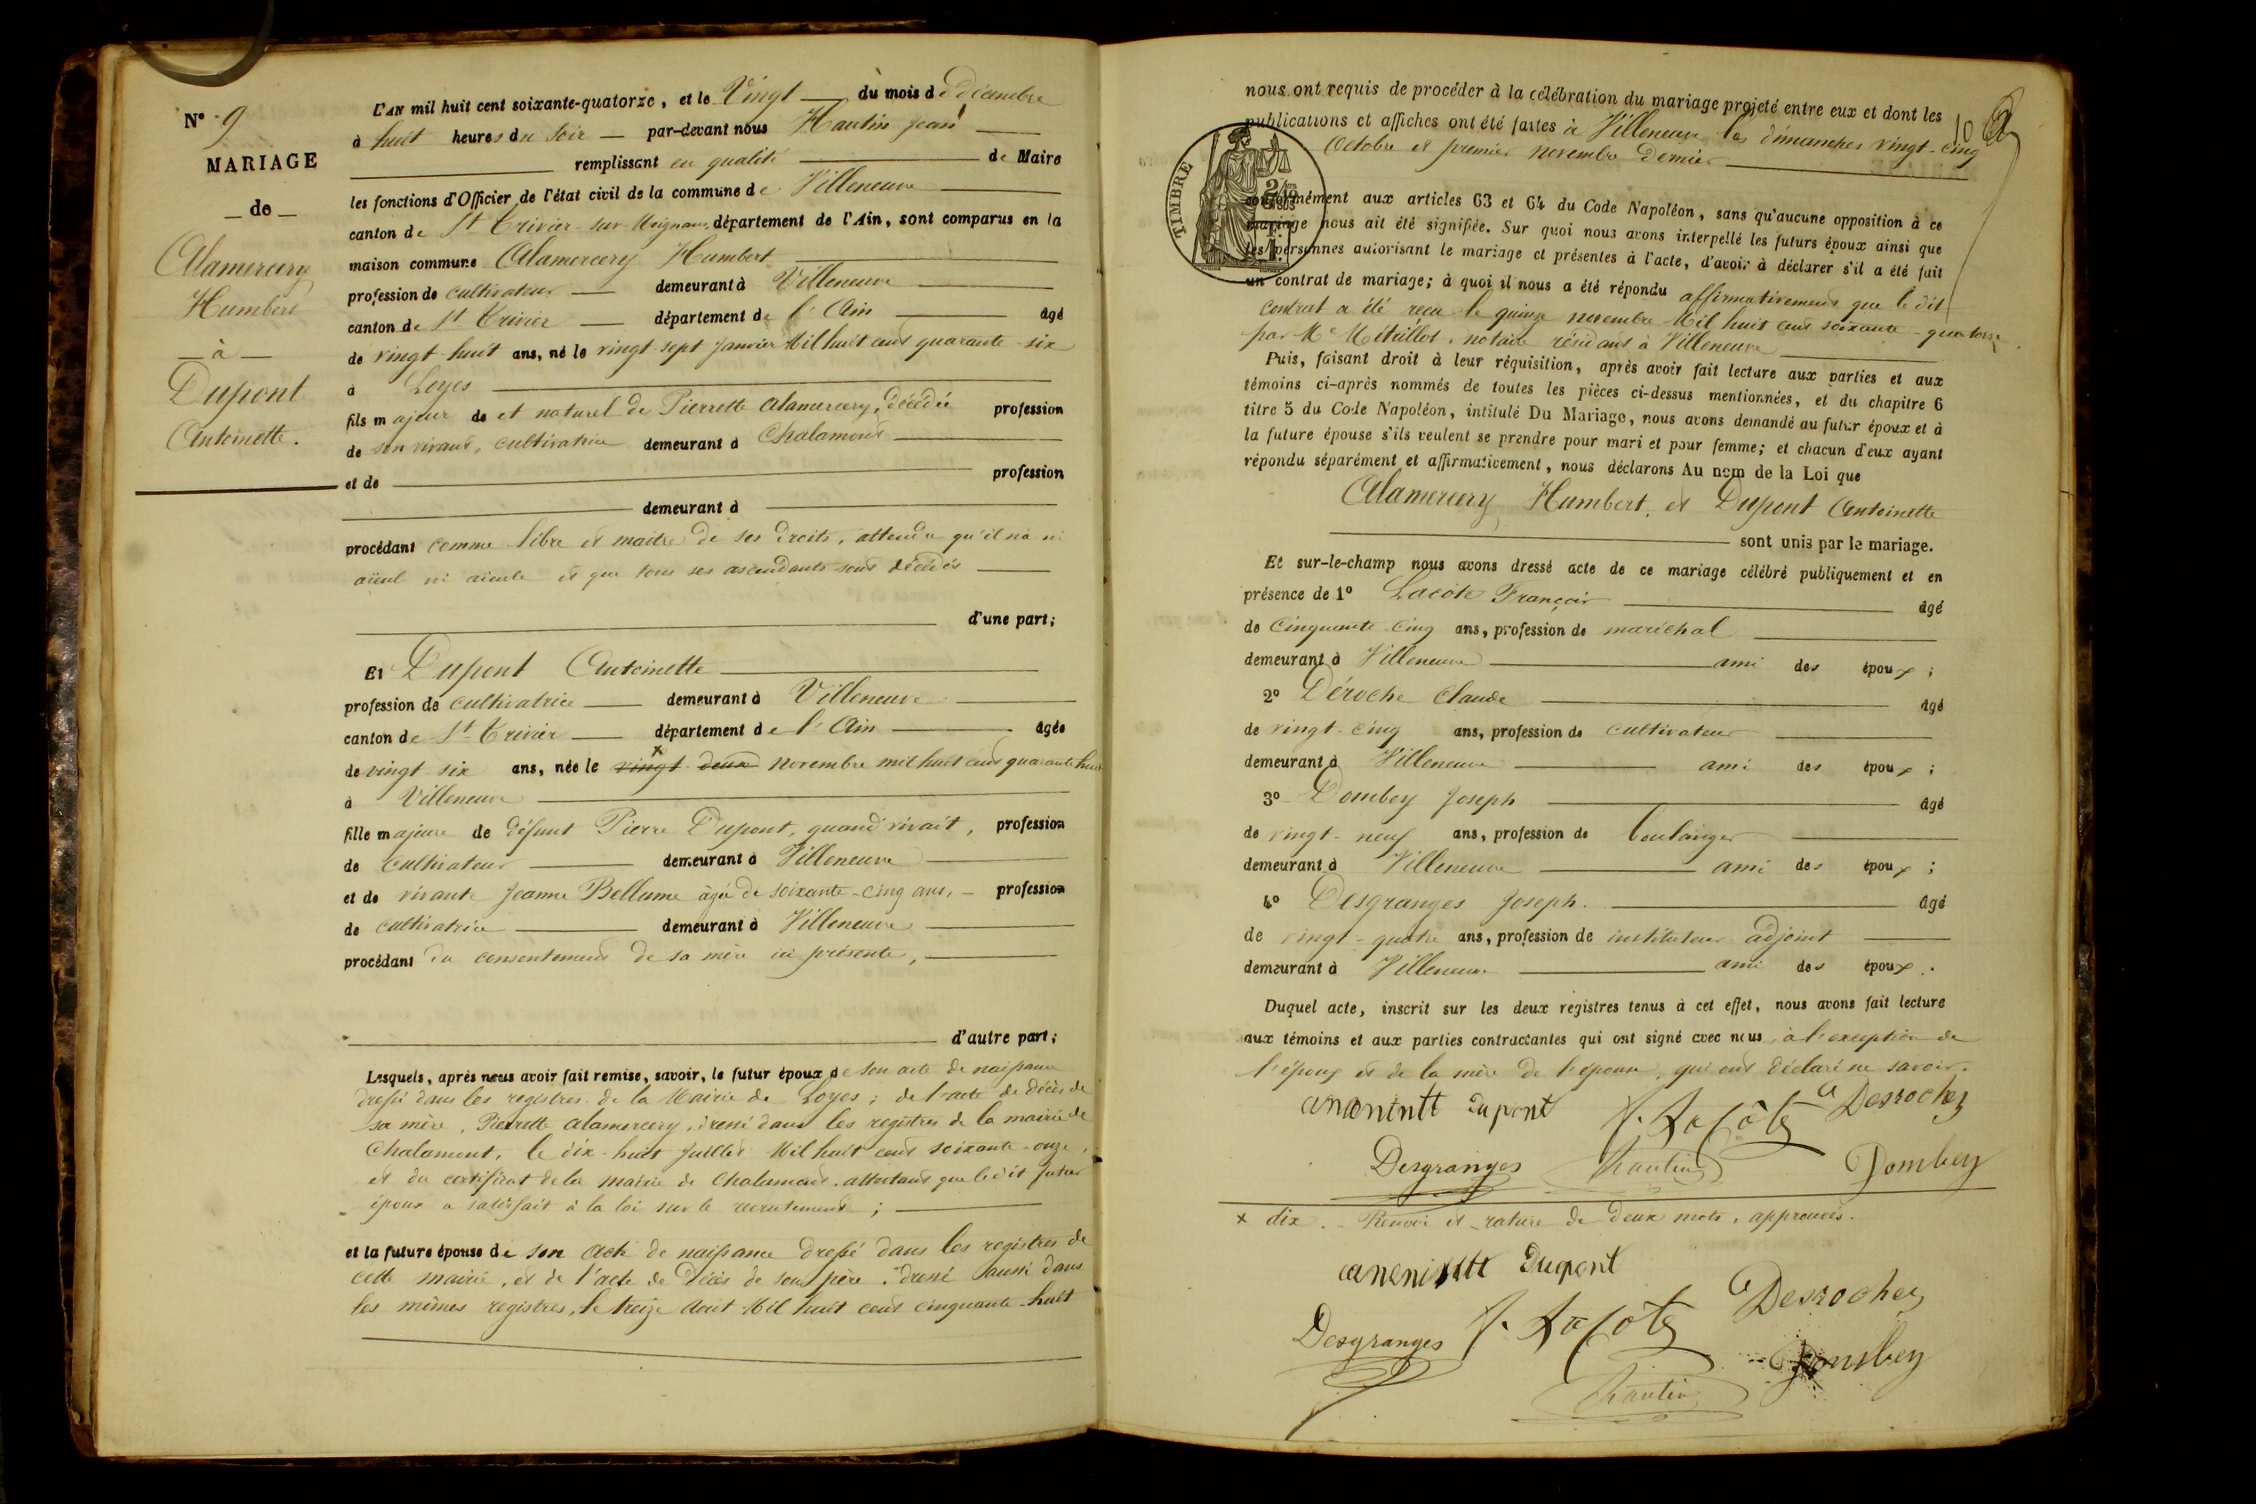 N° 9
MARIAGE
de
Alamercery
Humbert
à
Dupont
Antoinette.
L'AN mil huit cent soixante-quatorze, et le Vingt du mois de décembre
à huit heures du soir par-devant nous Hautin Jean
remplissant en qualité de Maire
les fonctions d'Officier de l'état civil de la commune de Villeneuve
canton de St Trivier-sur-Moignans, département de l'Ain, sont comparus en la
maison commune Alamercery Humbert
profession de cultivateur demeurant à Villeneuve
canton de St Trivier département de l'Ain âgé
de vingt-huit ans, né le vingt-sept Janvier Mil huit cent quarante-six
à Loyes
fils majeur de et naturel de Pierrette Alamercery, décédée profession
de son vivant, cultivatrice demeurant à Chalamont
et de profession
demeurant à
procédant comme libre et maître de ses droits, attendu qu'il n'a ni
aïeul ni aïeule et que tous ses ascendants sont décédés
d'une part;
Et Dupont Antoinette
profession de cultivatrice demeurant à Villeneuve
canton de St Trivier département de l'Ain âgée
de vingt-six ans, née le x vingt-deux novembre mil huit cent quarante huit
à Villeneuve
fille majeure de défunt Pierre Dupont, quand vivait, profession
de cultivateur demeurant à Villeneuve
et de vivante Jeanne Bellume âgée de soixante-cinq ans, profession
de cultivatrice demeurant à Villeneuve
procédant du consentement de sa mère ici présente,
d'autre part;
Lesquels, après nous avoir fait remise, savoir, le futur époux de son acte de naissance
dressé dans les registres de la Mairie de Loyes; de l'acte de décès de
sa mère, Pierrette Alamercery, dressé dans les registres de la mairie de
Chalamont, le dix-huit Juillet Mil huit cent soixante-onze,
et du certificat de la mairie de Chalamont attestant que le dit futur
époux a satisfait à la loi sur le recrutement;
et la future épouse de son acte de naissance dressé dans les registres de
cette mairie, et de l'acte de décès de son père, dressé aussi dans
les mêmes registres, le treize Août Mil huit cent cinquante-huit
10
nous ont requis de procéder à la célébration du mariage projeté entre eux et dont les
publications et affiches ont été faites à Villeneuve les dimanches vingt-cinq
Octobre et premier novembre dernier
TIMBRE
conformément aux articles 63 et 64 du Code Napoléon, sans qu'aucune opposition à ce
mariage nous ait été signifiée. Sur quoi nous avons interpellé les futurs époux ainsi que
les personnes autorisant le mariage et présentes à l'acte, d'avoir à déclarer s'il a été fait
un contrat de mariage; à quoi il nous a été répondu affirmativement que le dit
contrat a été reçu le quinze novembre Mil huit cent soixante-quatorze
par Me Métrillot, notaire résidant à Villeneuve
Puis, faisant droit à leur réquisition, après avoir fait lecture aux parties et aux
témoins ci-après nommés de toutes les pièces ci-dessus mentionnées, et du chapitre 6
titre 5 du Code Napoléon, intitulé Du Mariage, nous avons demandé au futur époux et à
la future épouse s'ils veulent se prendre pour mari et pour femme; et chacun d'eux ayant
répondu séparément et affirmativement, nous déclarons Au nom de la Loi que
Alamercery, Humbert, et Dupont Antoinette
sont unis par le mariage.
Et sur-le-champ nous avons dressé acte de ce mariage célébré publiquement et en
présence de 1° Lacôte François âgé
de cinquante-cinq ans, profession de maréchal
demeurant à Villeneuve ami des époux;
2° Déroche Claude âgé
de vingt-cinq ans, profession de cultivateur
demeurant à Villeneuve ami des époux;
3° Dombey Joseph âgé
de vingt-neuf ans, profession de boulanger
demeurant à Villeneuve ami des époux;
4° Desgranges Joseph. âgé
de vingt-quatre ans, profession de instituteur adjoint
demeurant à Villeneuve ami des époux.
Duquel acte, inscrit sur les deux registres tenus à cet effet, nous avons fait lecture
aux témoins et aux parties contractantes qui ont signé avec nous, à l'exception de
l'époux et de la mère de l'épouse, qui ont déclaré ne savoir.
Dupont f. Lacôte C Desroches
Desgranges Hautin Dombey
x dix. Renvoi et rature de deux mots, approuvés.
Dupont
Desgranges f. Lacôte C Desroches
Hautin Dombey